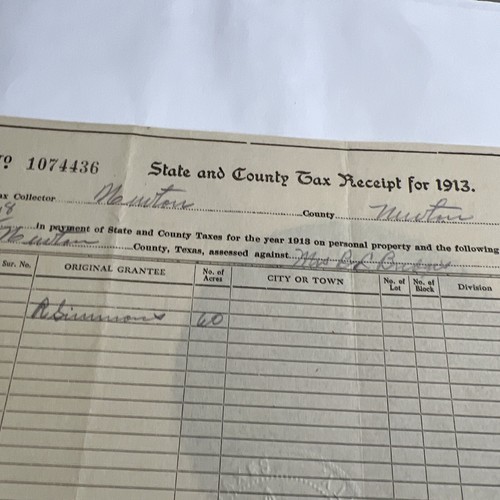 No 1074436 State and County Tax Receipt for 1913.
ax Collector Newton County Newton
8 in payment of State and County Taxes for the year 1913 on personal property and the following
Newton County, Texas, assessed against Mrs
Sur. No. ORIGINAL GRANTEE No. of Acres CITY OR TOWN No. of Lot No. of Block Division
R Simmons 60